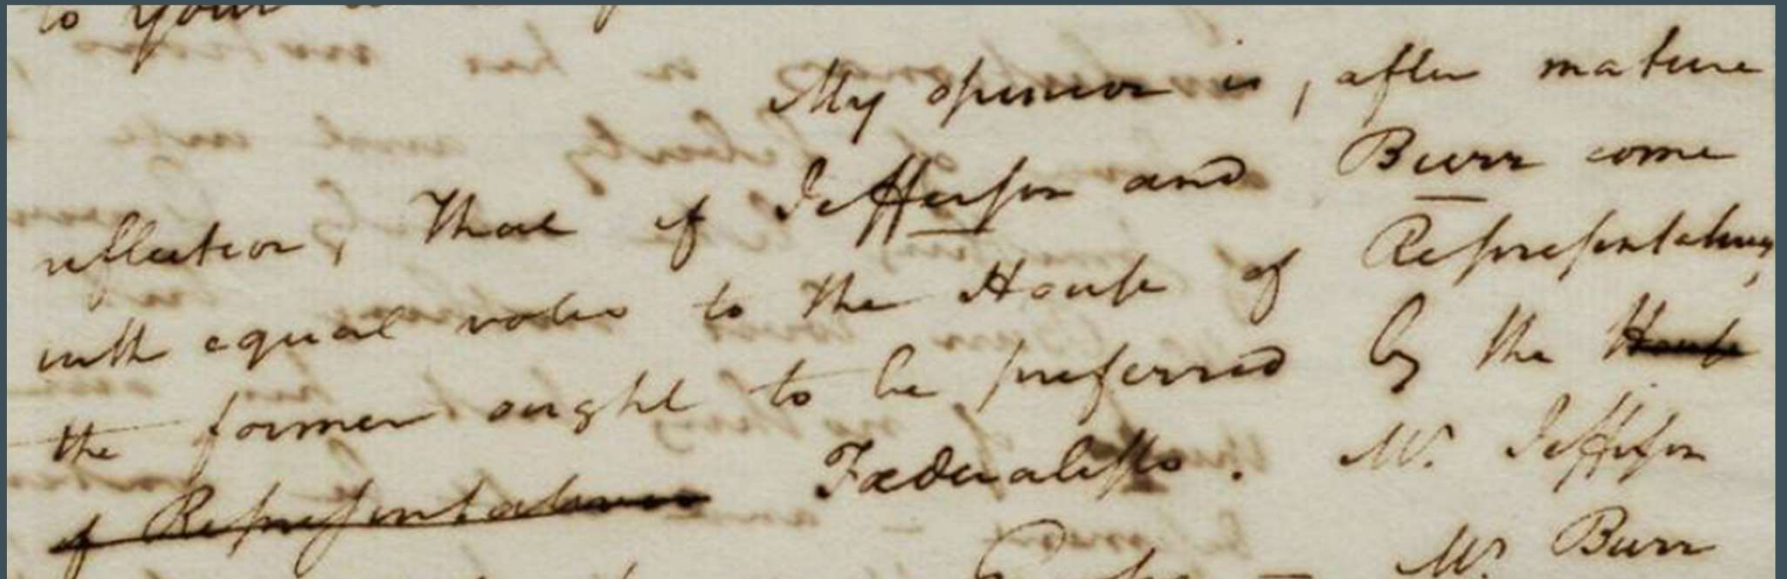 to your
My opinion is, after mature
reflection, that if Jefferson and Burr come
with equal votes to the House of Representatives,
the former ought to be preferred by the House
of Representatives Fœderalists. Mr. Jefferson
Mr. Burr